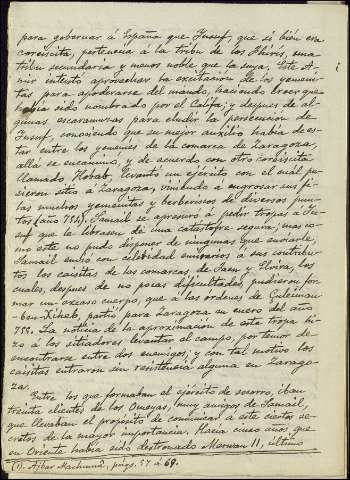 para gobernar á España que Jusuf, que si bien era
coreiscita, pertenecia á la tribu de los Fhiries, una
tribu secundaria y menos noble que la suya. Este A-
mir intentó aprovechar la excitación de los yemeni-
tas para apoderarse del mando, haciendo creer que
habia sido nombrado por el Califa; y despues de al-
gunas escaramuzas para eludir la persecución de
Jusuf, conociendo que su mejor auxilio habia de es-
tar entre los yemenies de la comarca de Zaragoza,
allá se encaminó, y de acuerdo con otro coreiscita
llamado Hobab, levantó un ejército con el cual pu-
sieron sitio á Zaragoza, viniendo a engrosar sus fi-
las muchos yemenitas y berberiscos de diversos pun-
tos (año 754). Samail se apresuró á pedir tropas a Ju-
suf que le librasen de una catástrofe segura; mas co-
mo este no pudo disponer de ningunas que enviarle,
Samail envió con celeridad emisarios á sus contribu-
tos los caisitas de las comarcas de Jaen y Elvira, los
cuales, despues de no pocas dificultades, pudieron for-
mar un escaso cuerpo, que á las órdenes de Culeiman-
ben-Xiheb, partió para Zaragoza en enero del año
755. La noticia de la aproximación de esta tropa hi-
zo á los sitiadores levantar el campo, por temor de
encontrarse entre dos enemigos; y con tal motivo los
caisitas entraron sin resistencia alguna en Zarago-
za.
Entre los que formaban el ejército de socorro, iban
treinta clientes de los Omeyas, muy amigos de Samail,
que llevaban el propósito de comunicar a este ciertos se-
cretos de la mayor importancia. Hacia cinco años que
en Oriente habia sido destronado Merwan II, último
(1). Ajbar Machmuâ, págs. 67 á 69.